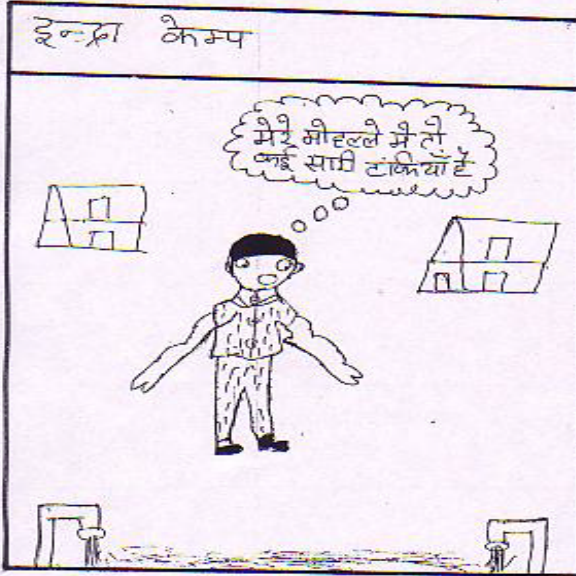 इन्द्रा केम्प
मेरे मोहल्ले मे तो
कई सारी टंकियाँ हैं